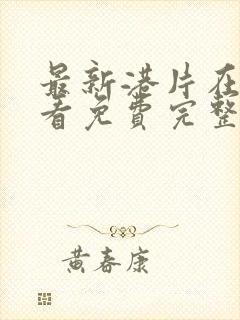 最新港片在
看免费完整
黄春康